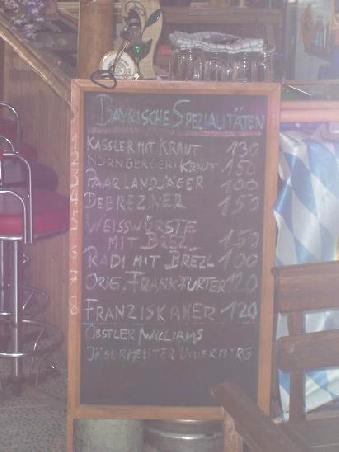 BAYRISCHE SPEZIALITÄTEN
KASSLER MIT KRAUT 130
NÜRNBERGER KRAUT 150
PAAR LANDJÄGER 100
DEBREZNER 150
WEISSWÜRSTE
MIT BREZ'L 150
RADI MIT BREZ'L 100
ORIG. FRANKFURTER 120
FRANZISKANER 120
OBSTLER WILLIAMS
JÄGERMEISTER UNDERBERG